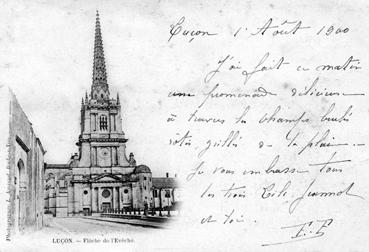 Luçon 1 Août 1900
J'ai fait ce matin
une promenade délicieuse
à travers les champs brulés
rôtis, grillés de la plaine
Je vous embrasse tous
les trois Jeannot
et toi.
LUÇON. — Flèche de l'Evêché.